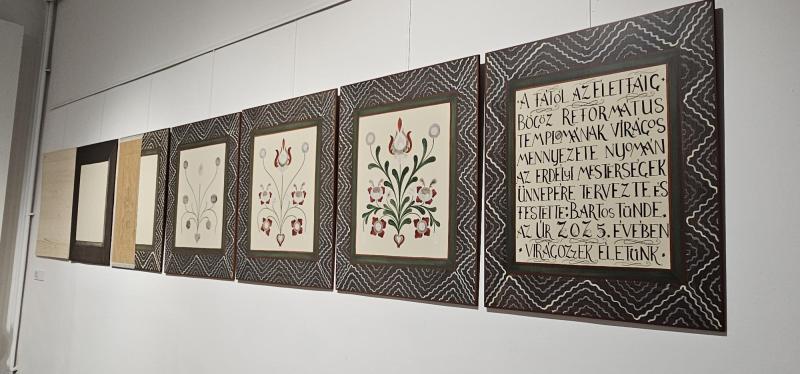 · A FÁTÓL AZ ÉLETFÁIG ·
BÖGÖZ REFORMÁTUS
TEMPLOMÁNAK VIRÁGOS
MENNYEZETE NYOMÁN
AZ ERDÉLYI MESTERSÉGEK
ÜNNEPÉRE TERVEZTE ÉS
FESTETTE: BARTOS TÜNDE.
AZ ÚR 2025. ÉVÉBEN
· VIRÁGOZZÉK ÉLETÜNK ·